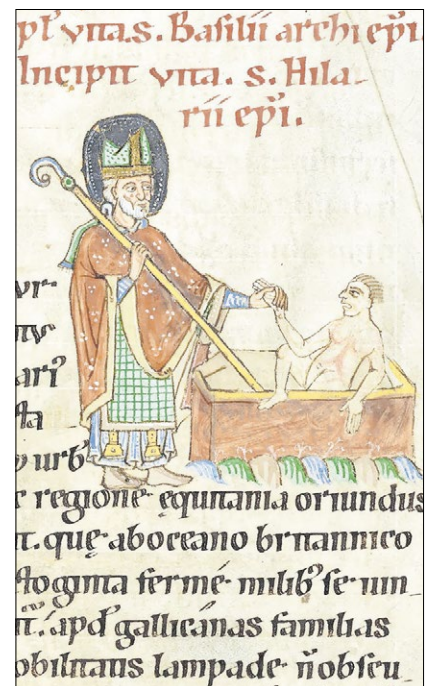 pl̄ vita.s. Basilii archiep̄i.
Incipit vita. s. Hila-
rii ep̄i.
ur-
nē
ari⁹
sta
urb
regione equitania oriundus
it. que aboceano britannico
toginta fermé milib⁹ se iun-
it. apd̄ gallicanas familias
obilitatis lampade n̄ obscu-